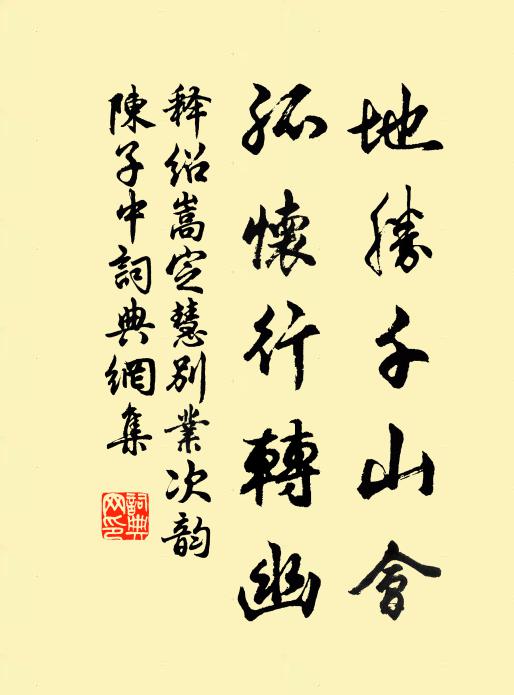 地勝千山會
孤懷行轉幽
释紹嵩定慧別業次韵
陳子中詞典網集
詞典網印